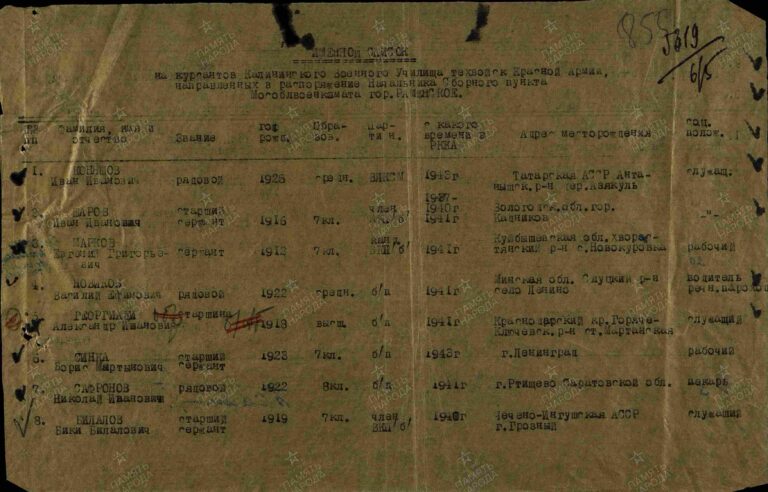 855
5819
6/5
ИМЕННОЙ СПИСОК
на курсантов Калининского Военного Училища техвойск Красной Армии,
направленных в распоряжение Начальника Сборного пункта
Мособлвоенкомата гор. РАМЕНСКОЕ.
Фамилия, имя и отчество Звание год рожд. Обра- зов. Пар- ти н. с какого времени в РККА Адрес месторождения соц. полож.
1. Иван Иванович рядовой 1926 средн. ВЛКСМ 1943г Татарская АССР служащ.
2. Иван Иванович старший сержант 1916 7кл. член ВКП/б/ 1937- 1940г 1941г Вологодск.обл.гор. Кадников -"-
3. МАРКОВ Евгений Григорье- вич сержант 1912 7кл. канд. ВКП/б/ 1941г Куйбышевская обл. с.Новокуровка рабочий
4. НОВИКОВ Василий рядовой 1922 средн. б/п 1941г Минская обл. Слуцкий р-н село Ленино водитель
5. Александр Иванович старшина 1918 высш. б/п 1941г Краснодарский кр. Горяче- Ключевск.р-н ст.Мартанская служащий
6. СИНКА Борис Мартынович старший сержант 1923 7кл. б/п 1943г г.Ленинград рабочий
7. САФРОНОВ Николай Иванович рядовой 1922 8кл. б/п 1941г г.Ртищево Саратовской обл. пекарь
8. БИЛАЛОВ Вики Билалович старший сержант 1919 7кл. член ВКП/б/ 1940г Чечено-Ингушская АССР г.Грозный служащий